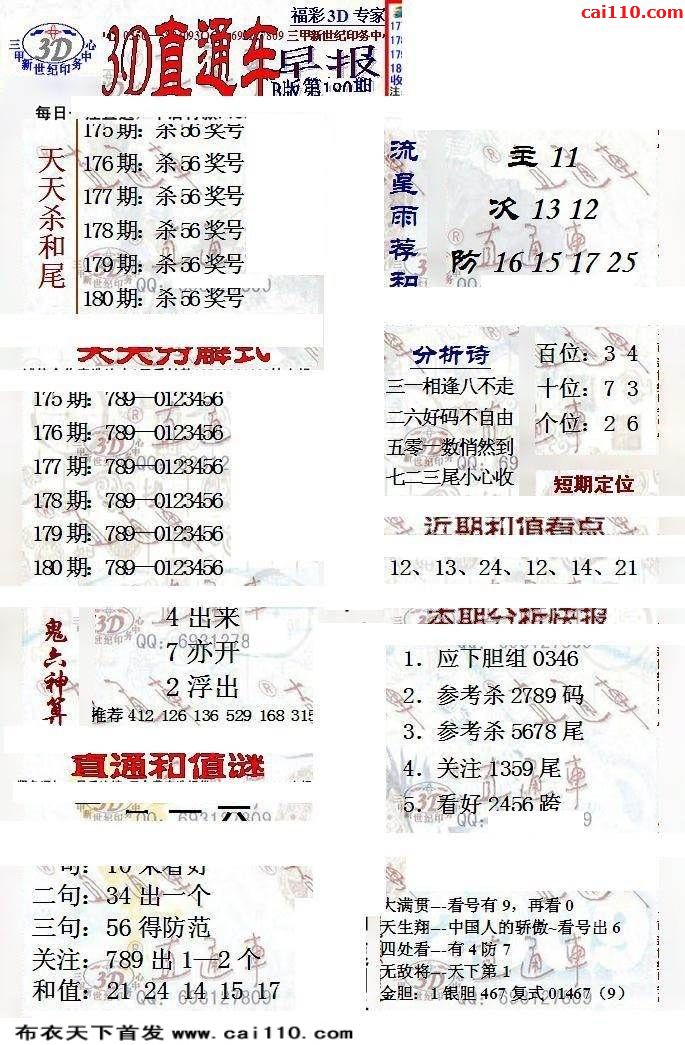 cai110.com
福彩3D专家
三甲新世纪印务中心
3D直通车
早报
B版第180期
每日
天天杀和尾
175期：杀56奖号
176期：杀56奖号
177期：杀56奖号
178期：杀56奖号
179期：杀56奖号
180期：杀56奖号
流星雨荐和
主 11
次 13 12
防 16 15 17 25
天天分解式
175期：789—0123456
176期：789—0123456
177期：789—0123456
178期：789—0123456
179期：789—0123456
180期：789—0123456
分析诗
三一相逢八不走
二六好码不自由
五零一数悄然到
七二三尾小心收
百位：3 4
十位：7 3
个位：2 6
短期定位
近期和值看点
12、13、24、12、14、21
鬼六神算
4 出来
7 亦开
2 浮出
推荐 412 126 136 529 168 315
本期分析快报
1．应下胆组 0346
2．参考杀 2789 码
3．参考杀 5678 尾
4．关注 1359 尾
5．看好 2456 跨
直通和值谜
二句：34 出一个
三句：56 得防范
关注：789 出 1—2 个
和值：21 24 14 15 17
大满贯---看号有 9，再看 0
天生翔---中国人的骄傲~看号出 6
四处看---有 4 防 7
无敌将---天下第 1
金胆：1 银胆 467 复式 01467（9）
布衣天下首发 www.cai110.com